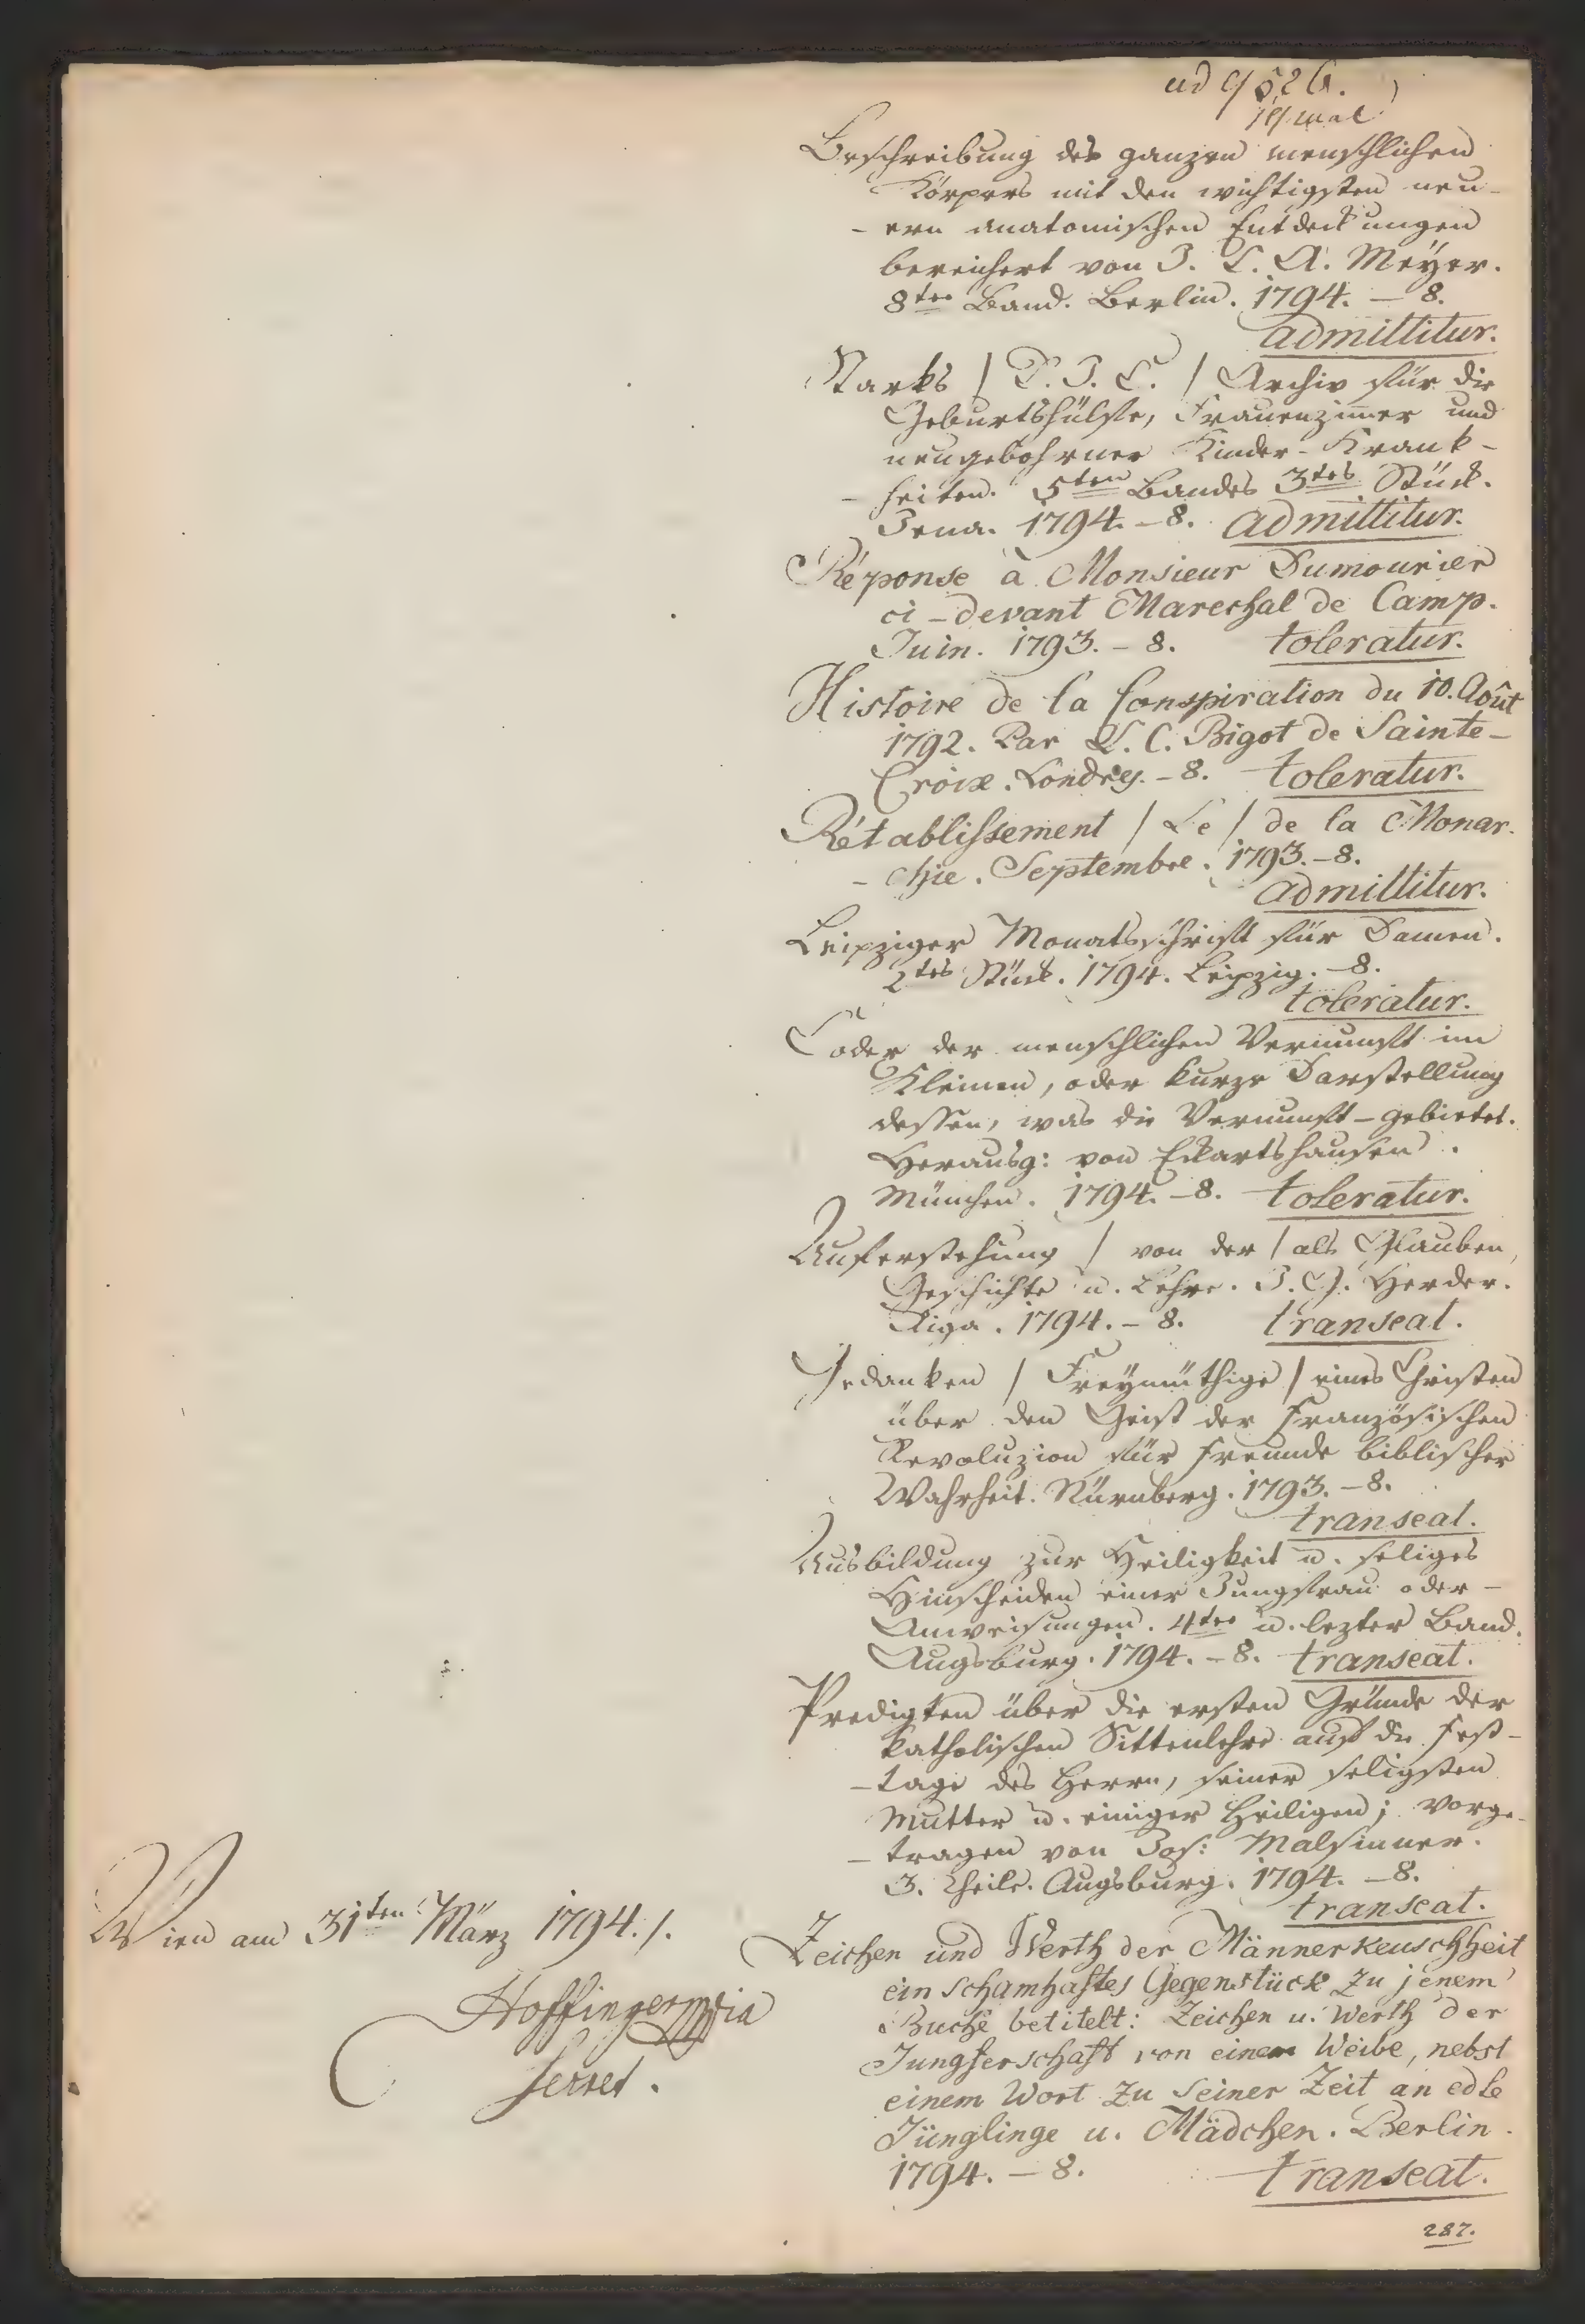 ad 9526.
Beschreibung des ganzen menschlichen
Körpers mit den wichtigsten neu-
- ern anatomischen Entdeckungen
bereichert von J. C. A. Meÿer.
8ter Band. Berlin. 1794. – 8.
admittitur.
Starks / D. J. C. / Archiv für die
Geburtshülfe, Frauenzimmer und
neugebohrner Kinder-Krank-
- heiten. 5ten Bandes 3tes Stück.
Jena. 1794. – 8. admittitur.
Réponse à Monsieur Dumourier
ci-devant Marechal de Camp.
Juin. 1793. – 8. toleratur.
Histoire de la Conspiration du 10. Août
1792. Par L. C. Bigot de Sainte-
Croix. Londres. – 8. toleratur.
Rétablissement / Le / de la Monar-
- chie. Septembre. 1793. – 8.
admittitur.
Leipziger Monatsschrift für Damen.
2tes Stück. 1794. Leipzig. – 8.
toleratur.
Codex der menschlichen Vernunft im
Kleinen, oder kurze Darstellung
dessen, was die Vernunft – gebietet.
Herausg: von Eckartshausen.
München. 1794. – 8. toleratur.
Auferstehung / von der / als Glauben,
Geschichte u. Lehre. J. G. Herder.
Riga. 1794. – 8. transeat.
Gedanken / Freÿmüthige / eines Christen
über den Geist der französischen
Revoluzion für Freunde biblischer
Wahrheit. Nürnberg. 1793. – 8.
transeat.
Ausbildung zur Heiligkeit u. seliges
Hinscheiden einer Jungfrau oder –
Anweisungen. 4ter u. lezter Band.
Augsburg. 1794. – 8. transeat.
Predigten über die ersten Gründe der
katholischen Sittenlehre auf die Fest-
- tage des Herrn, seiner seligsten
Mutter u. einiger Heiligen; vorge-
- tragen von Jos: Malsinner.
3. Theile. Augsburg. 1794. – 8.
transeat.
Zeichen und Werth der Männerkeuschheit
ein schamhaftes Gegenstück zu jenem
Buche betitelt: Zeichen u. Werth der
Jungferschaft von einem Weibe, nebst
einem Wort zu seiner Zeit an edle
Jünglinge u. Mädchen. Berlin.
1794. – 8. transeat.
Wien am 31ten März 1794./.
Hoffinger
287.